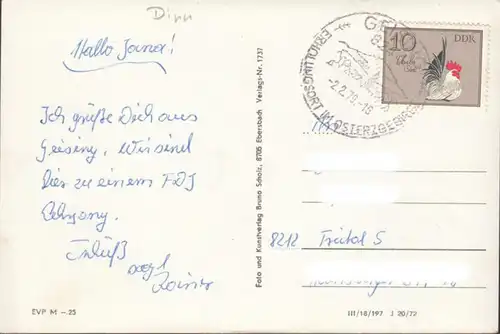 Dirn
Hallo Jana!
Ich grüße Dich aus
Geising. Wir sind
hier zu einem FDJ
Lehrgang.
Rainer
EVP M –.25
Foto und Kunstverlag Bruno Scholz, 8705 Ebersbach Verlags-Nr. 1737
ERHOLUNGSORT IM OSTERZGEBIRGE
-2.2.79-18
10
DDR
8212 Freital 5
III/18/197 J 20/72